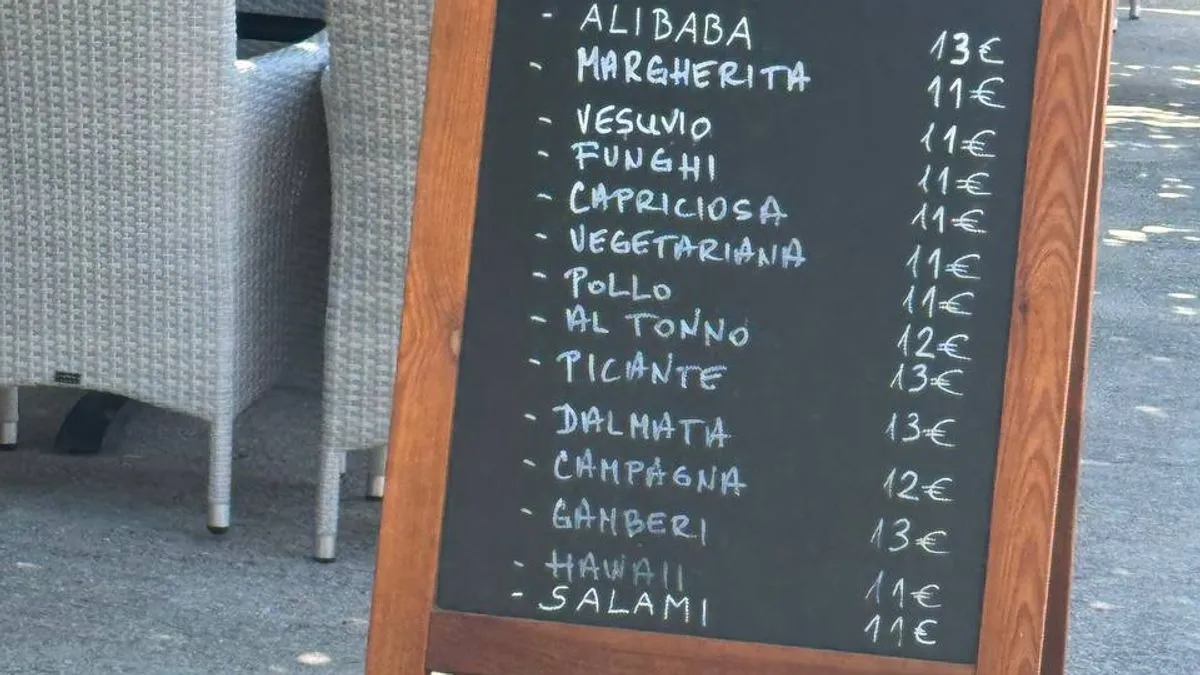 - ALIBABA 13€
- MARGHERITA 11€
- VESUVIO 11€
- FUNGHI 11€
- CAPRICIOSA 11€
- VEGETARIANA 11€
- POLLO 11€
- AL TONNO 12€
- PICANTE 13€
- DALMATA 13€
- CAMPAGNA 12€
- GAMBERI 13€
- HAWAII 11€
- SALAMI 11€